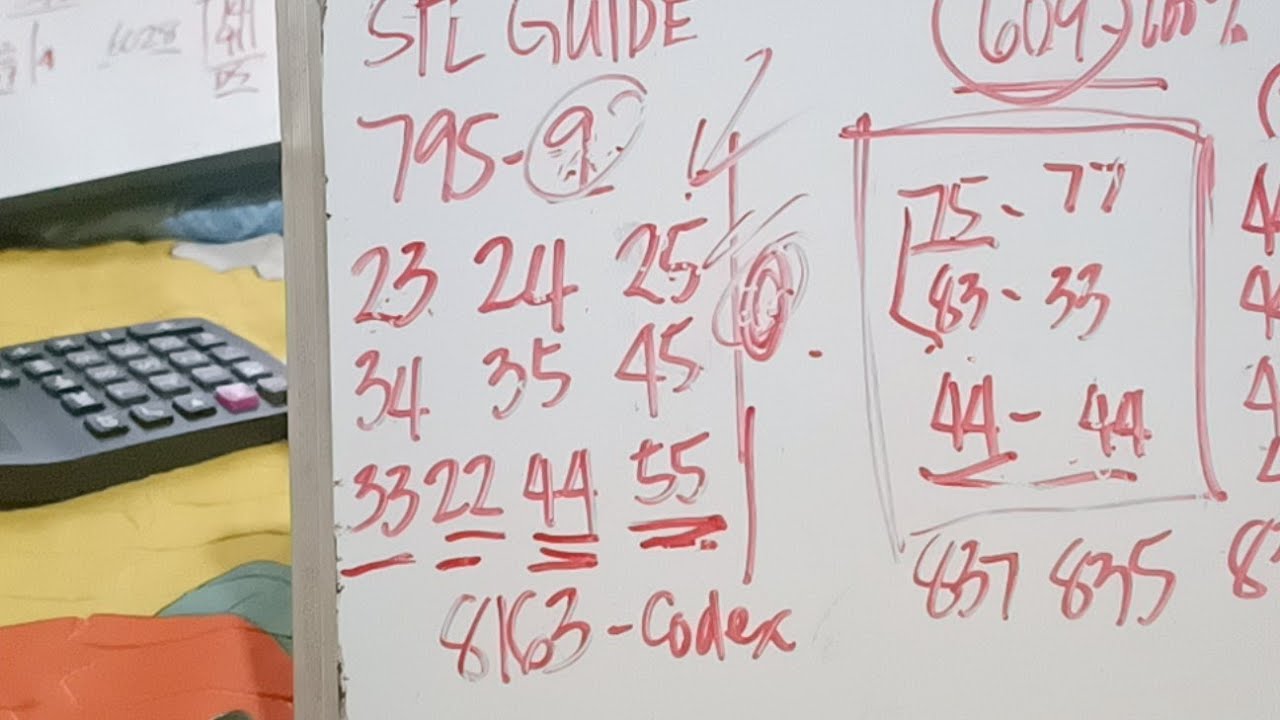 STL GUIDE
795-9
23 24 25
34 35 45
33 22 44 55
8163-Codex
609-100%
75-77
83-33
44-44
837 835
6028